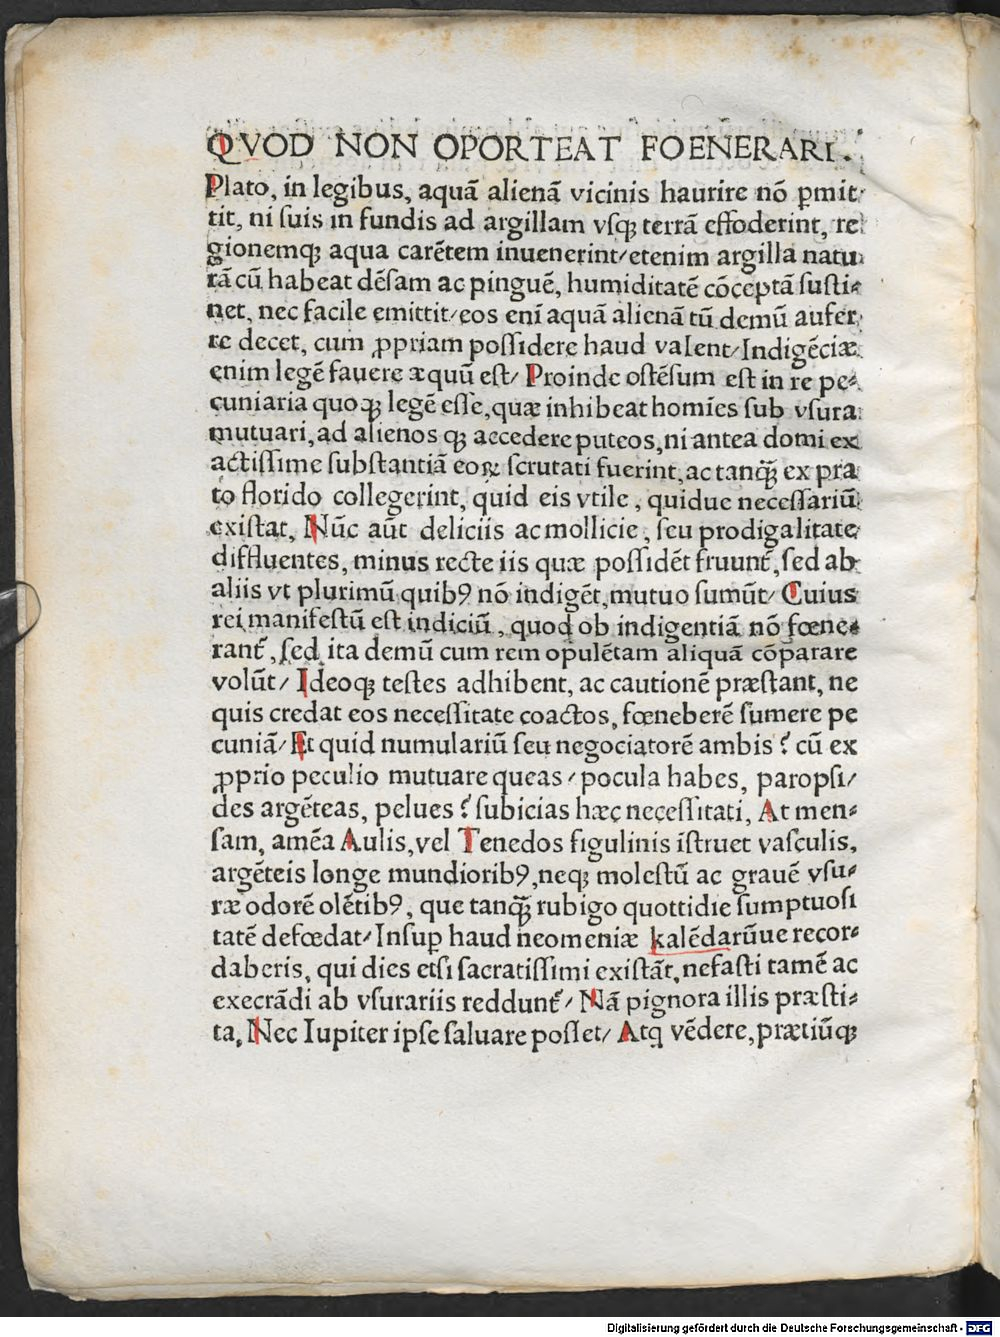 QVOD NON OPORTEAT FOENERARI.
Plato, in legibus, aquā alienā vicinis haurire nō ꝑmit
tit, ni ſuis in fundis ad argillam vſqꝫ terrā effoderint, re
gionemqꝫ aqua carētem inuenerint/etenim argilla natu
rā cū habeat dēſam ac pinguē, humiditatē cōceptā ſuſti⸗
net, nec facile emittit/eos enī aquā alienā tū demū aufer
re decet, cum ꝓpriam poſſidere haud valent/Indigēciæ
enim legē fauere æquū eſt/ Proinde oſtēſum eſt in re pe⸗
cuniaria quoqꝫ legē eſſe, quæ inhibeat homīes ſub vſura
mutuari, ad alienos qꝫ accedere puteos, ni antea domi ex
actiſſime ſubſtantiā eoꝝ ſcrutati fuerint, ac tanqꝫ̄ ex pra
to florido collegerint, quid eis vtile, quidue neceſſariū
exiſtat, Nūc aūt deliciis ac mollicie, ſeu prodigalitate
diffluentes, minus recte iis quæ poſſidēt fruunt᷑, ſed ab
aliis vt plurimū quibꝰ nō indigēt, mutuo ſumūt/ Cuius
rei manifeſtū eſt indiciū, quod ob indigentiā nō fœne⸗
rant᷑, ſed ita demū cum rem opulētam aliquā cōparare
volūt/ Ideoqꝫ teſtes adhibent, ac cautionē præſtant, ne
quis credat eos neceſſitate coactos, fœneberē ſumere pe
cuniā/ Et quid numulariū ſeu negociatorē ambis? cū ex
ꝓprio peculio mutuare queas/ pocula habes, paropſi/
des argēteas, pelues? ſubicias hæc neceſſitati, At men⸗
ſam, amēa Aulis, vel Tenedos figulinis īſtruet vaſculis,
argēteis longe mundioribꝰ, neqꝫ moleſtū ac grauē vſu⸗
ræ odorē olētibꝰ, que tanqꝫ̄ rubigo quottidie ſumptuoſi
tatē defœdat/ Inſuꝑ haud neomeniæ kalēdarūue recor⸗
daberis, qui dies etſi ſacratiſſimi exiſtāt, nefaſti tamē ac
execrādi ab vſurariis reddunt᷑/ Nā pignora illis præſti⸗
ta, Nec Iupiter ipſe ſaluare poſſet/ Atq vēdere, prætiūqꝫ
Digitalisierung gefördert durch die Deutsche Forschungsgemeinschaft - DFG